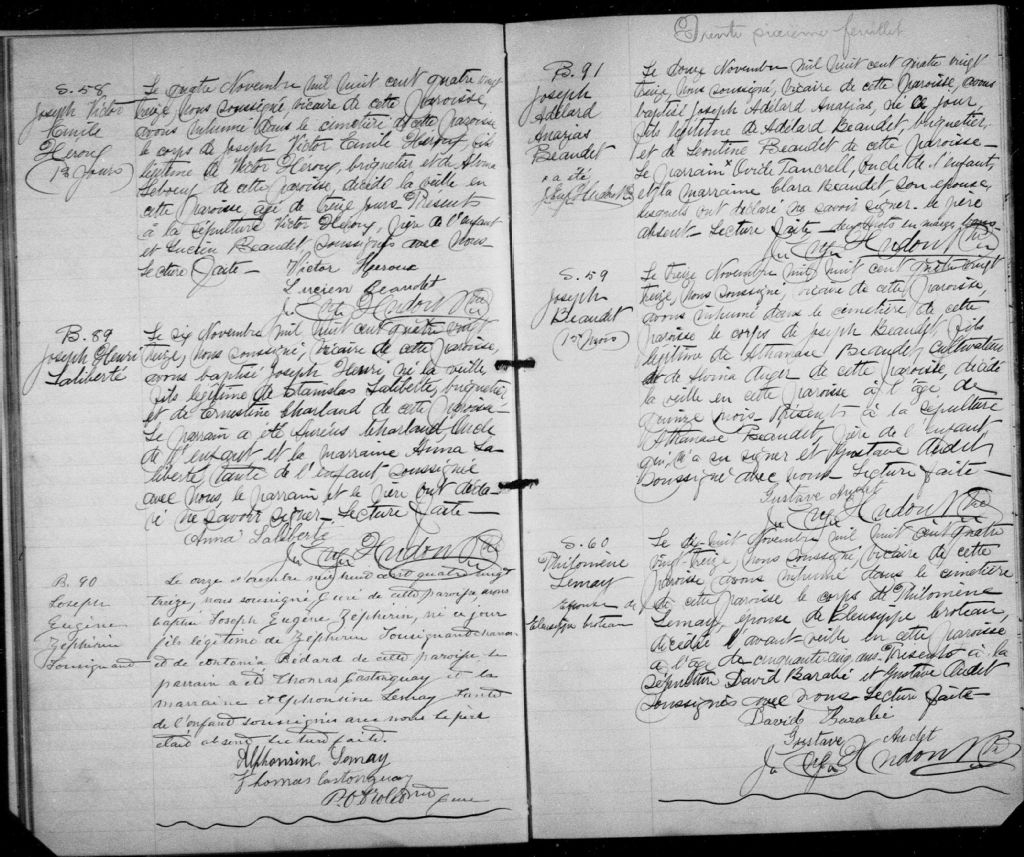 S. 58
Joseph Victor
Emile
Heroux
(13 Jours)
Le quatre Novembre mil huit cent quatre vingt
treize, nous soussigné vicaire de cette paroisse,
avons inhumé dans le cimetière de cette paroisse
le corps de Joseph Victor Emile Heroux, fils
légitime de Victor Heroux, briquetier et de
Leboeuf de cette paroisse, décédé la veille en
cette paroisse agé de treize jours. Présents
à la sépulture Victor Heroux, père de l'enfant
et Lucien Beaudet, soussignés avec nous.
Lecture faite—
Victor Heroux
Lucien Beaudet
Hudon Ptre
B. 89
Joseph Henri
Laliberté
Le six Novembre mil huit cent quatre vingt
treize, nous soussigné, vicaire de cette paroisse,
avons baptisé Joseph Henri, né la veille,
fils légitime de Stanislas Laliberté, briquetier
et de Ernestine Charland de cette paroisse—
Le parrain a été Aurèlus Charland, oncle
de l'enfant et la marraine Anna La-
liberté, tante de l'enfant soussignée
avec nous, le parrain et le père ont décla-
ré ne savoir signer. Lecture faite—
Anna Laliberté
Hudon Ptre
B. 90
Joseph
Eugène
Zéphirin
Tousignand
Le onze Novembre mil huit cent quatre vingt
treize, nous soussigné Curé de cette paroisse, avons
baptisé Joseph Eugène Zéphirin, né ce jour
fils légitime de Zéphirin Tousignand
et de Bédard de cette paroisse le
parrain a été Thomas Castonguay et la
marraine Alphonsine Lemay tante
de l'enfant soussignés avec nous le père
était absent lecture faite.
Alphonsine Lemay
Thomas Castonguay
Curé
Trente sixième feuillet
B. 91
Joseph
Adélard
Anazias
Beaudet
x a été
Le douze Novembre mil huit cent quatre vingt
treize, nous soussigné, vicaire de cette paroisse, avons
baptisé Joseph Adélard Anazias, né ce jour,
fils légitime de Adélard Beaudet, briquetier,
et de Léontine Beaudet de cette paroisse—
Le parrain x Ovide Tancrell, oncle de l'enfant,
et la marraine Clara Beaudet son épouse,
lesquels ont déclaré ne savoir signer. le père
absent— Lecture faite— deux mots en marge bons
Hudon Ptre
S. 59
Joseph
Beaudet
(15 mois)
Le treize Novembre mil huit cent quatre vingt
treize, nous soussigné, vicaire de cette paroisse,
avons inhumé dans le cimetière de cette
paroisse le corps de Joseph Beaudet, fils
légitime de Athanase Beaudet, cultivateur
et de Auger de cette paroisse, décédé
la veille en cette paroisse à l'âge de
quinze mois— Présents à la sépulture
Athanase Beaudet, père de l'enfant
qui n'a su signer et Gustave Audet
soussigné avec nous— Lecture faite—
Gustave Audet
Hudon Ptre
S. 60
Philomène
Lemay
épouse de
Eleusippe Croteau
Le dix-huit Novembre mil huit cent quatre
vingt-treize, nous soussigné, vicaire de cette
paroisse, avons inhumé dans le cimetière
de cette paroisse le corps de Philomène
Lemay, épouse de Eleusippe Croteau,
décédée l'avant-veille en cette paroisse
à l'âge de cinquante-cinq ans. Présents à la
sépulture David Barabé et Gustave Audet
soussignés avec nous Lecture faite—
David Barabé
Gustave Audet
Hudon Ptre